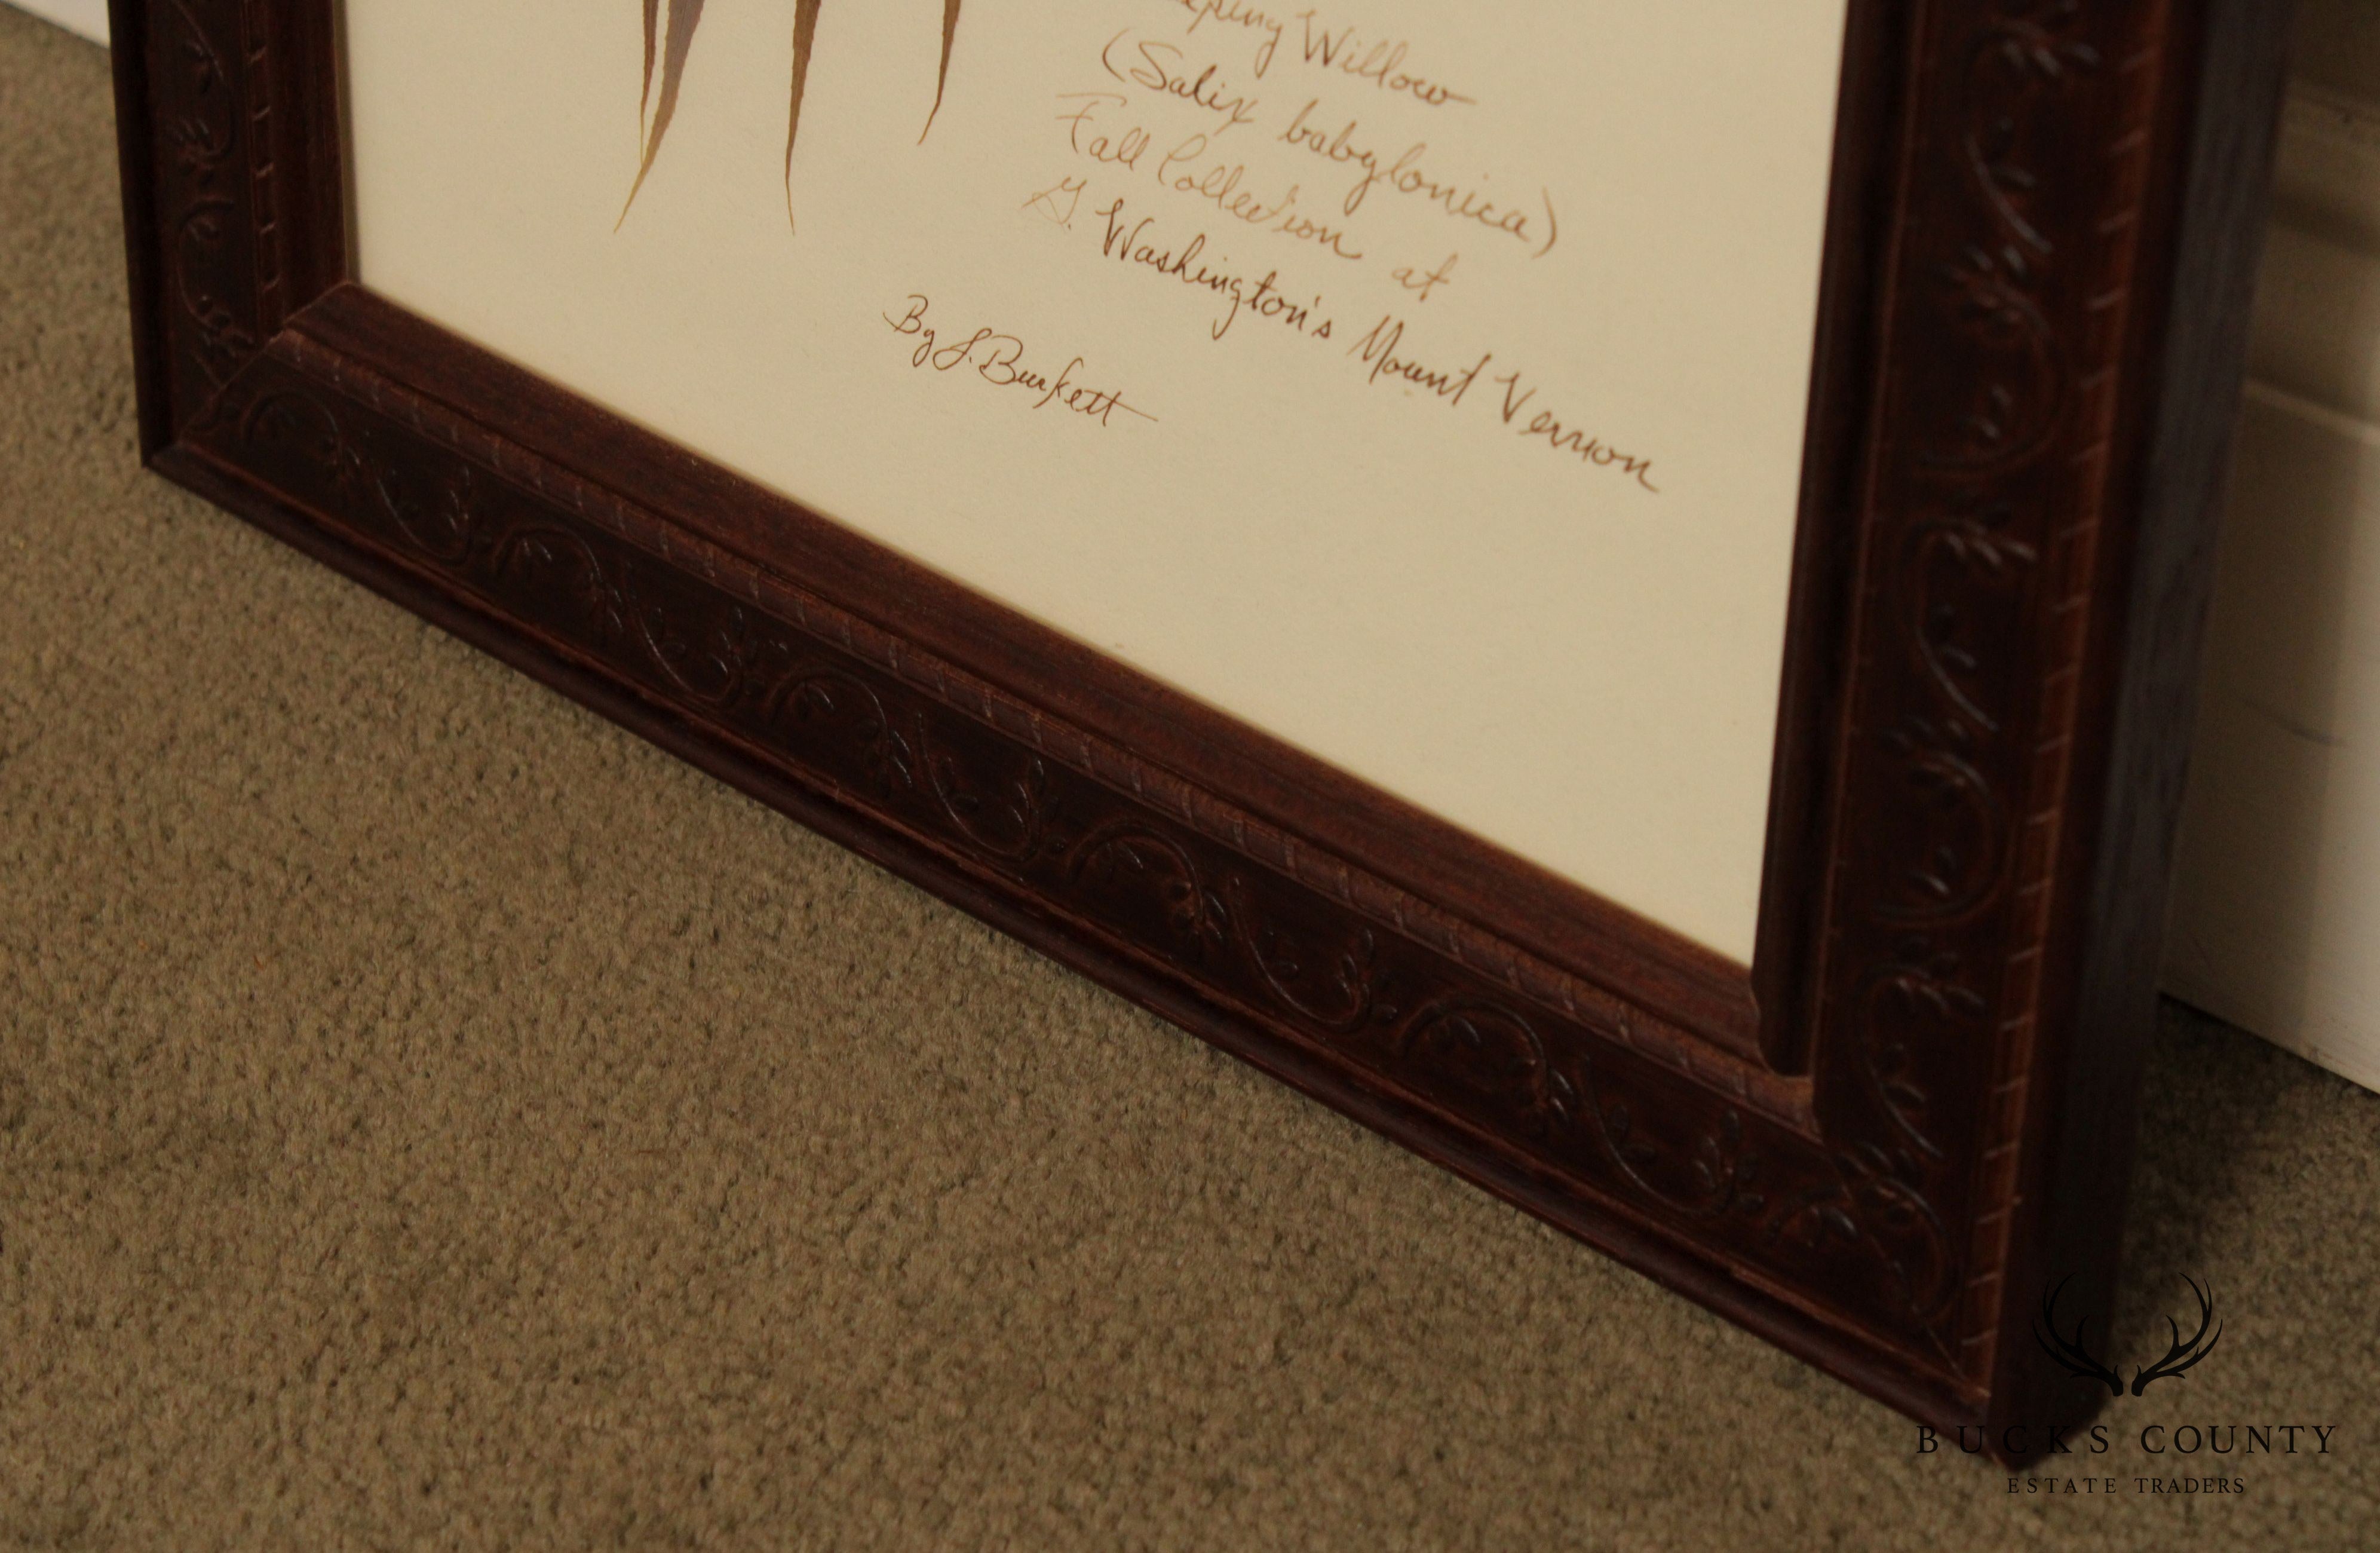 Willow
(Salix babylonica)
Fall Collection at
G. Washington's Mount Vernon
By J. Burkett
BUCKS COUNTY
ESTATE TRADERS